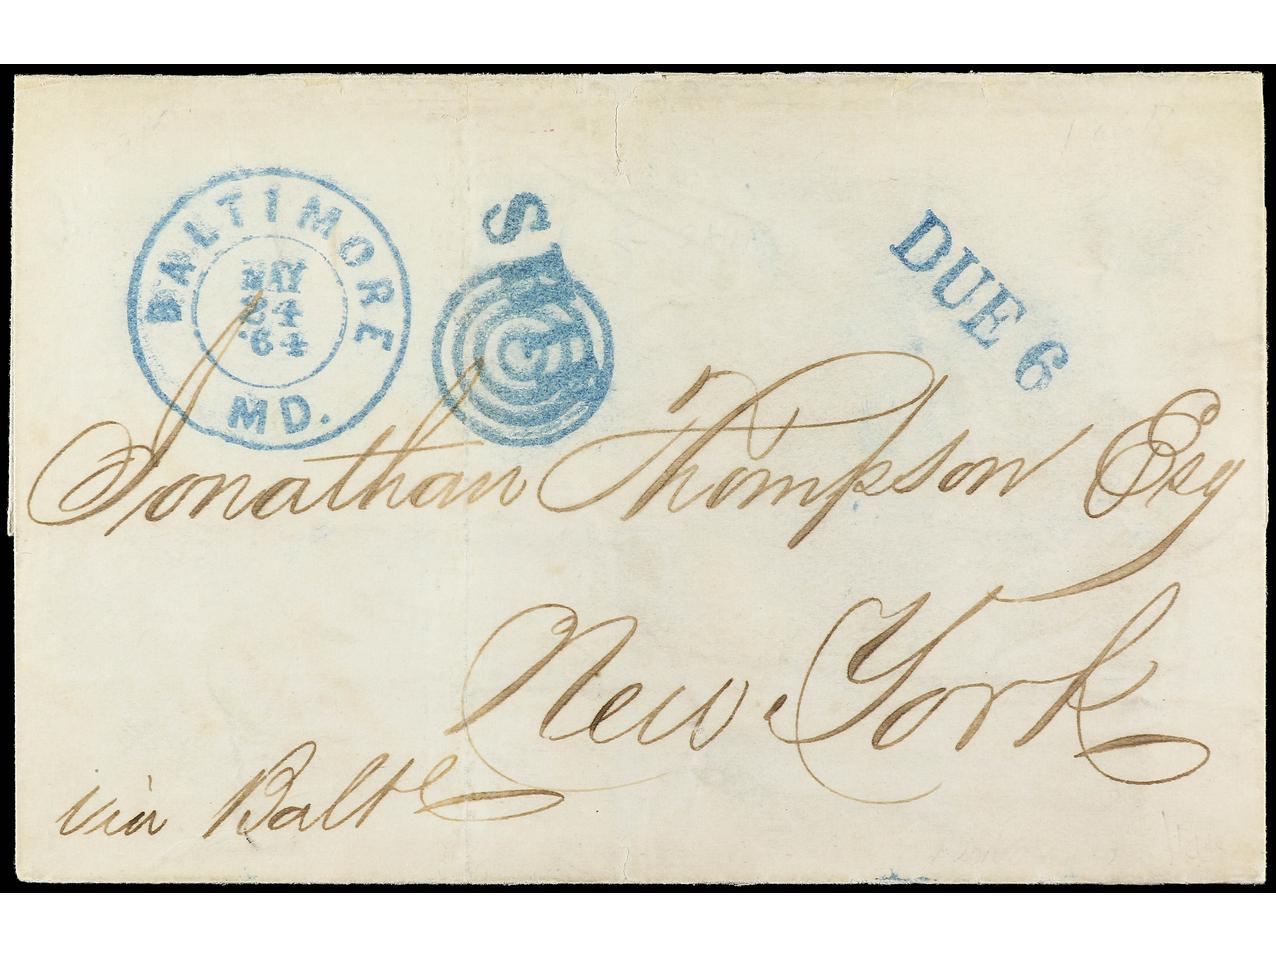 BALTIMORE
MAY
24
'64
MD.
DUE 6
Jonathan Thompson Esq
New York
via Balte